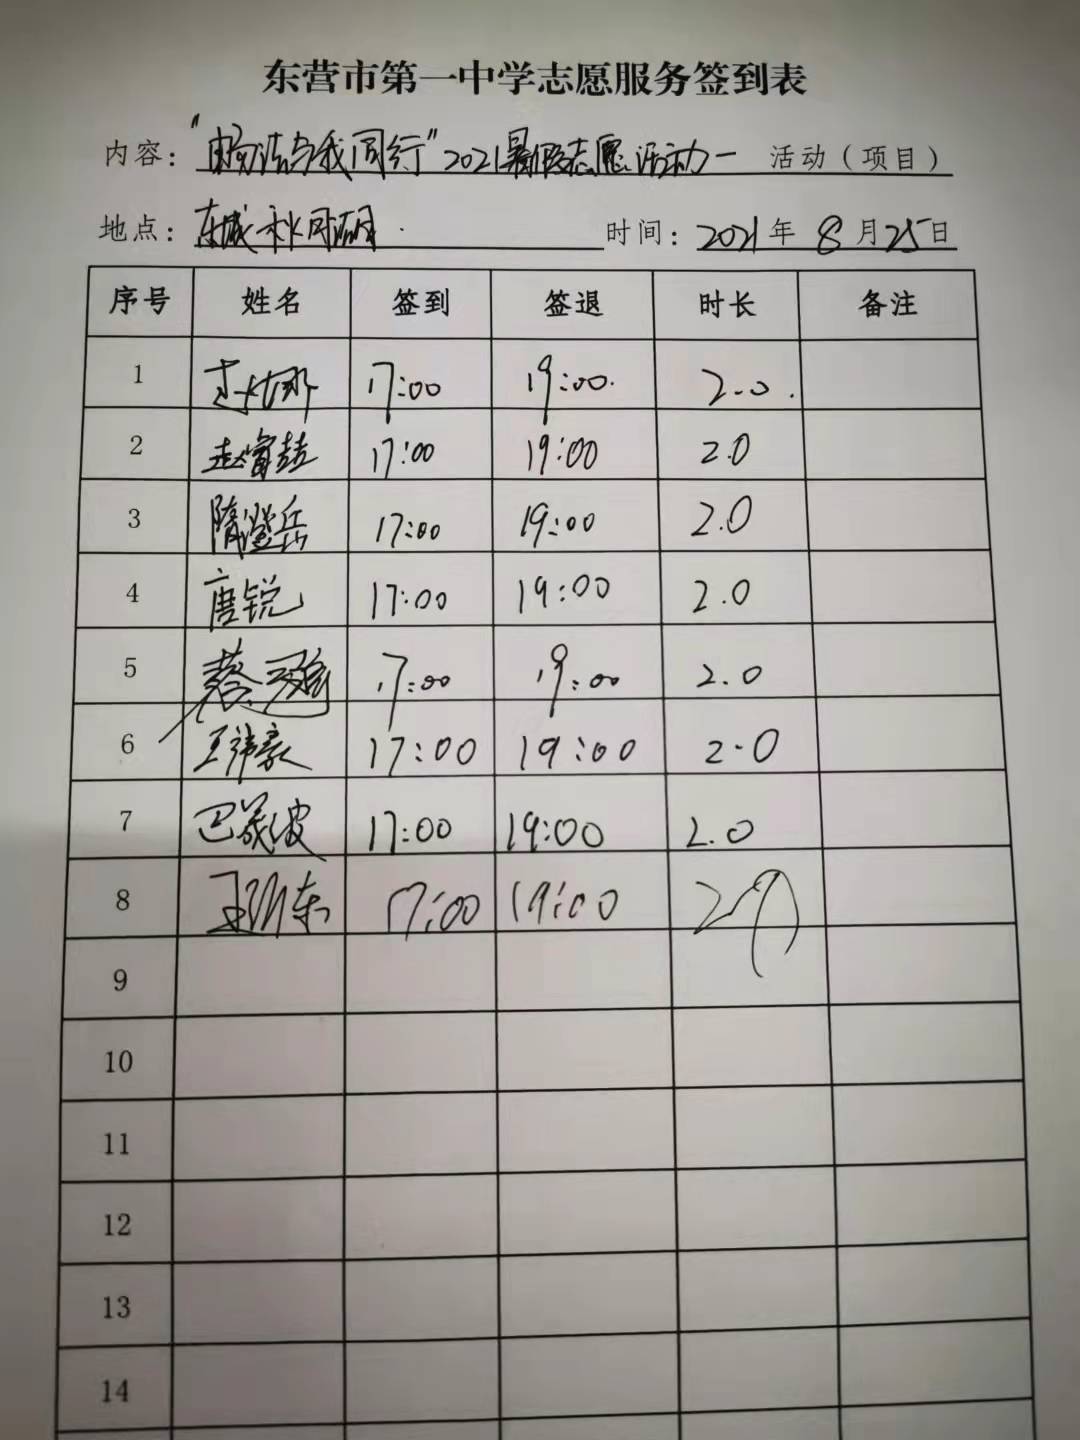 东营市第一中学志愿服务签到表
内容："与我同行"2021暑假志愿活动一 活动（项目）
地点：东城 时间：2021年8月25日
序号 姓名 签到 签退 时长 备注
1 17:00 19:00. 2.0.
2 赵富喆 17:00 19:00 2.0
3 隋澄岳 17:00 19:00 2.0
4 唐锐 17:00 19:00 2.0
5 蔡 17:00 19:00 2.0
6 王祎豪 17:00 19:00 2.0
7 巴晟波 17:00 19:00 2.0
8 王 东 17:00 19:00
9
10
11
12
13
14